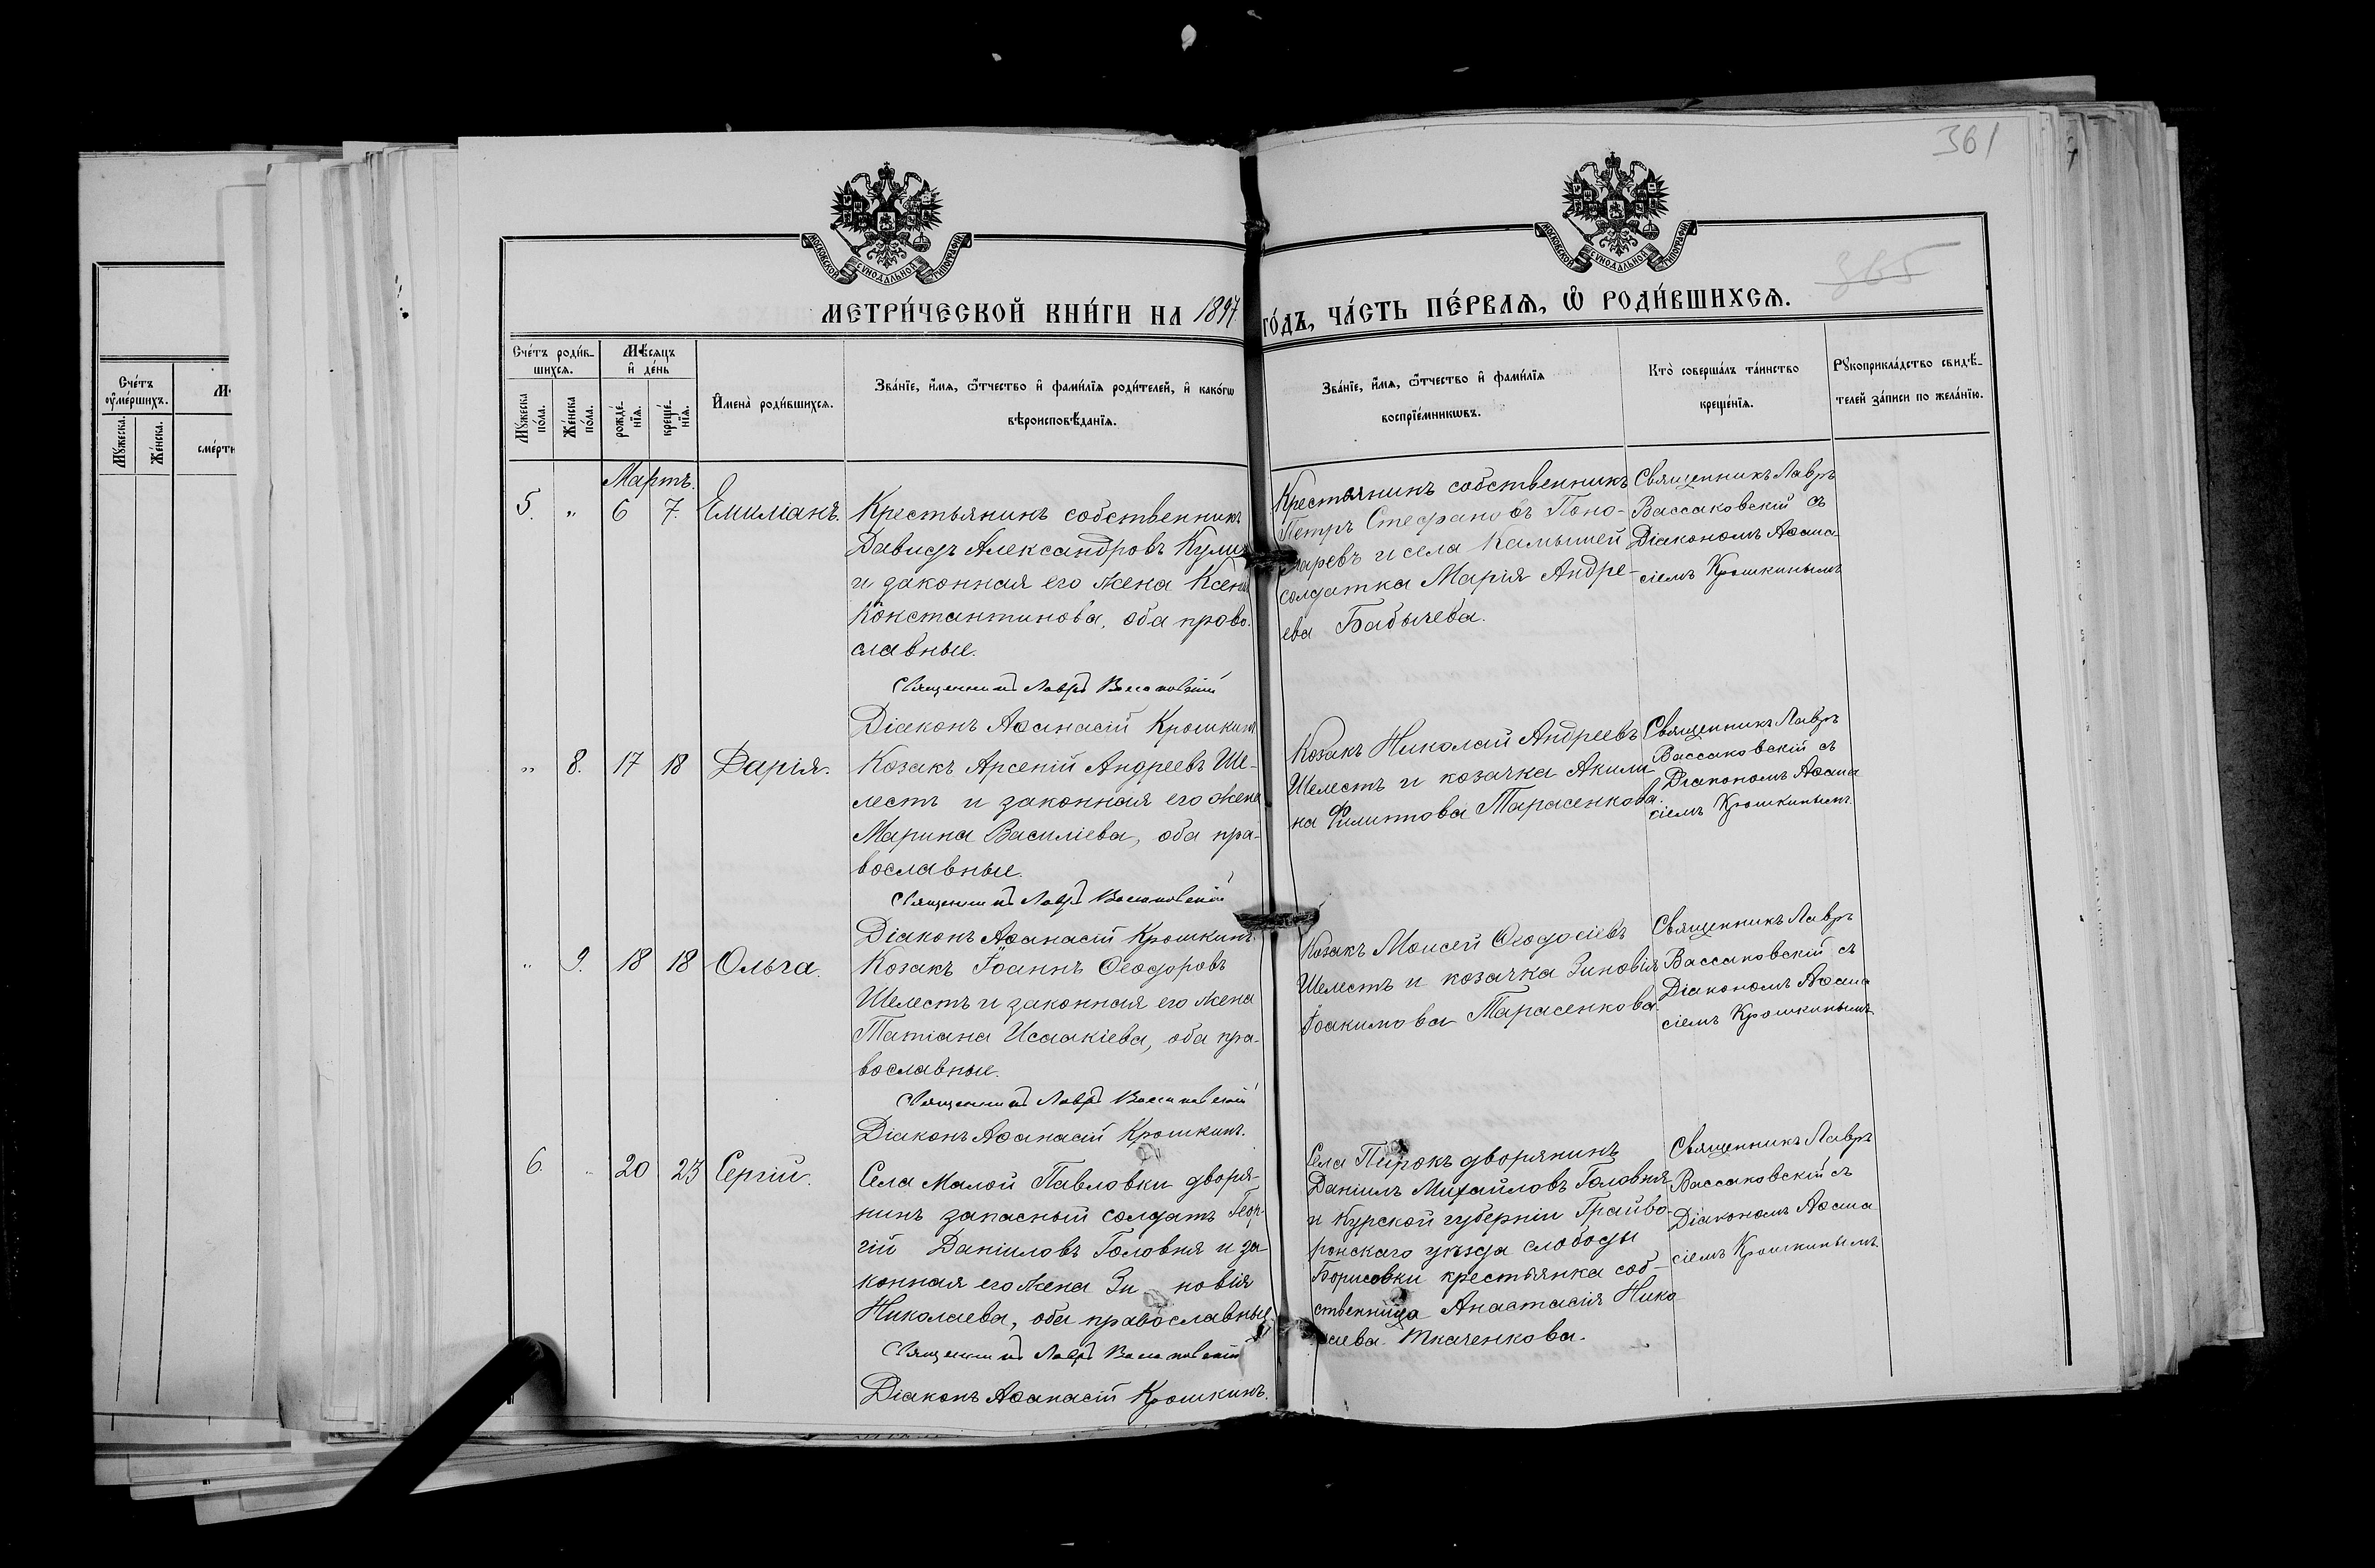 361
365
МОСКОВСКОЙ СУНОДАЛЬНОЙ ТИПОГРАФІИ
МОСКОВСКОЙ СУНОДАЛЬНОЙ ТИПОГРАФІИ
МЕТРИ́ЧЕСКОЙ КНИ́ГИ НА 1897 ГО́ДЪ, ЧА́СТЬ ПЕ́РВАѦ, Ѡ РОДИ́ВШИХСѦ.
Сче́тъ ᲂу҆ме́ршихъ.
Мꙋ́жеска.
Же́нска.
сме́рти
Сче́тъ роди́в-
шихсѧ.
Мꙋ́жеска по́ла.
Же́нска по́ла.
Мѣ́сѧцъ и҆ де́нь
рожде́-
нїѧ.
креще́-
нїѧ.
И҆мена̀ роди́вшихсѧ.
Зва́нїе, и҆́мѧ, ѻ҆́тчество и҆ фами́лїѧ роди́телей, и҆ како́гѡ
вѣроисповѣ́данїѧ.
Зва́нїе, и҆́мѧ, ѻ҆́тчество и҆ фами́лїѧ
воспрїе́мникѡвъ.
Кто̀ соверша́лъ та́инство
креще́нїѧ.
Рꙋкоприкла́дство свидѣ́-
телей за́писи по жела́нїю.
Мартъ.
5. „ 6 7. Емиліанъ.
Крестьянинъ собственникъ
Давидъ Александровъ
и законная его жена Ксенія
Константинова, оба право-
славные.
Священникъ Лавръ Вассаковскій
Діаконъ Аѳанасій Крошкинъ
Крестьянинъ собственникъ
Петръ Стефановъ Поно-
маревъ и села Камышей
солдатка Марія Андре-
ева Бабычева.
Священникъ Лавръ
Вассаковскій съ
Діакономъ Аѳана-
сіемъ Крошкинымъ
„ 8. 17 18 Дарія.
Козакъ Арсеній Андреевъ Ше-
лестъ и законная его жена
Марина Василіева, оба пра-
вославные.
Священникъ Лавръ Вассаковскій
Діаконъ Аѳанасій Крошкинъ.
Козакъ Николай Андреевъ
Шелестъ и козачка Акили-
на Филиппова Тарасенкова.
Священникъ Лавръ
Вассаковскій съ
Діакономъ Аѳана
сіемъ Крошкинымъ.
„ 9. 18 18 Ольга.
Козакъ Іоаннъ Ѳеодоровъ
Шелестъ и законная его жена
Татіана Исаакіева, оба пра-
вославные.
Священникъ Лавръ Вассаковскій
Діаконъ Аѳанасій Крошкинъ.
Козакъ Моисей Ѳеодосіевъ
Шелестъ и козачка Зиновія
Іоакимова Тарасенкова.
Священникъ Лавръ
Вассаковскій съ
Діакономъ Аѳана
сіемъ Крошкинымъ
6. „ 20 23 Сергій.
Села Малой Павловки дворя-
нинъ запасный солдатъ Геор-
гій Даніиловъ Головня и за-
конная его жена Зиновія
Николаева, оба православные
Священникъ Лавръ Вассаковскій
Діаконъ Аѳанасій Крошкинъ.
Села Пирокъ дворянинъ
Даніилъ Михайловъ Головня
и Курской губерніи Грайво-
ронскаго уѣзда слободы
Борисовки крестьянка соб-
ственница Анастасія Нико
лаева Ткаченкова.
Священникъ Лавръ
Вассаковскій съ
Діакономъ Аѳана
сіемъ Крошкинымъ.